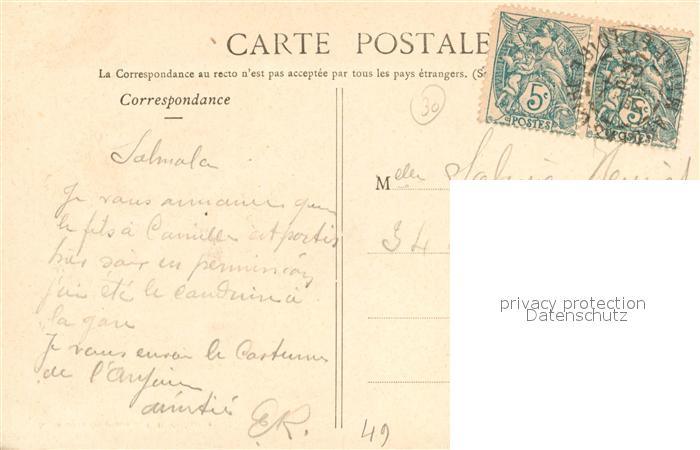 CARTE POSTALE
La Correspondance au recto n'est pas acceptée par tous les pays étrangers. (S
Correspondance
30
5c
POSTES
5c
POSTES
Melle
34
Je vous annonce que
le fils à Camille est partis
hier soir en permission
j'ai été le conduire à
la gare
Je vous envoi le Costume
de l'Anjou
amitiés
E.R.
49
privacy protection
Datenschutz